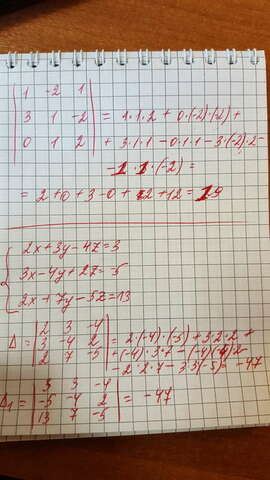 | 1 -2 1 |
| 3 1 -2 | = 1·1·2 + 0·(-2)·(-2) +
| 0 1 2 | + 3·1·1 - 0·1·1 - 3·(-2)·2 -
-1·1·(-2) =
= 2+0+3-0+2+12 = 19
{ 2x+3y-4z=3
3x-4y+2z=-5
2x+7y-5z=13
Δ = | 2 3 -4 |
| 3 -4 2 | = 2·(-4)·(-5) + 3·2·2 +
| 2 7 -5 | +(-4)·3·7 - (-4)(-4)2 -
- 2·2·7 - 3·3(-5) = -47
Δ1 = | 3 3 -4 |
| -5 -4 2 | = -47
| 13 7 -5 |